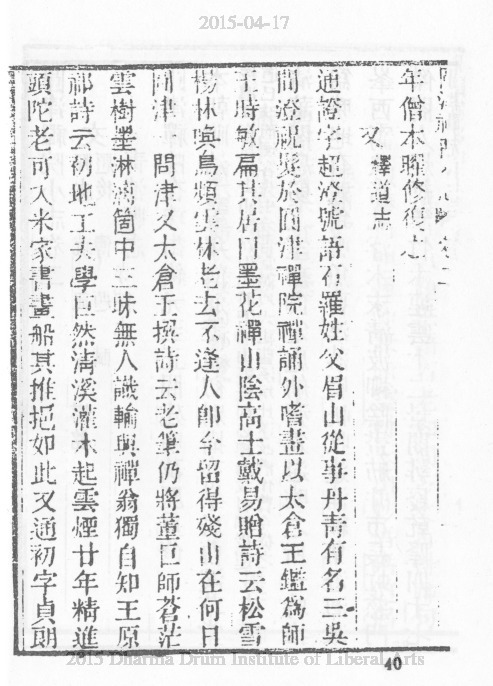 2015-04-17
年僧本曜修復之
又釋道志
通證字超澄號語石羅姓父眉山從事丹青有名三吳
間澄祝髮於圓津禪院禪誦外嗜畫以太倉王鑑為師
王時敏扁其居曰墨花禪山陰高士戴易贈詩云松雪
楊林喚鳥頻雲林老去不逢人即今留得殘山在何日
問津 問津又太倉王撰詩云老筆仍將董巨師蒼茫
雲樹墨淋漓箇中三昧無人識輸與禪翁獨自知王原
祁詩云初地工夫學巨然清溪灌木起雲煙廿年精進
頭陀老可入米家書畫船其推挹如此又通初字貞朗
40
2015 Dharma Drum Institute of Liberal Arts